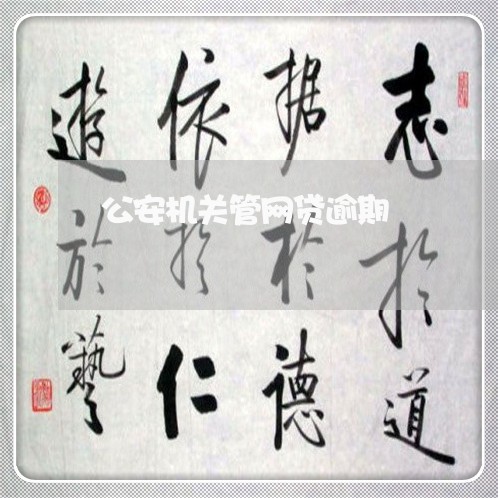 志於道
据於德
依於仁
遊於藝
公安机关管网贷逾期